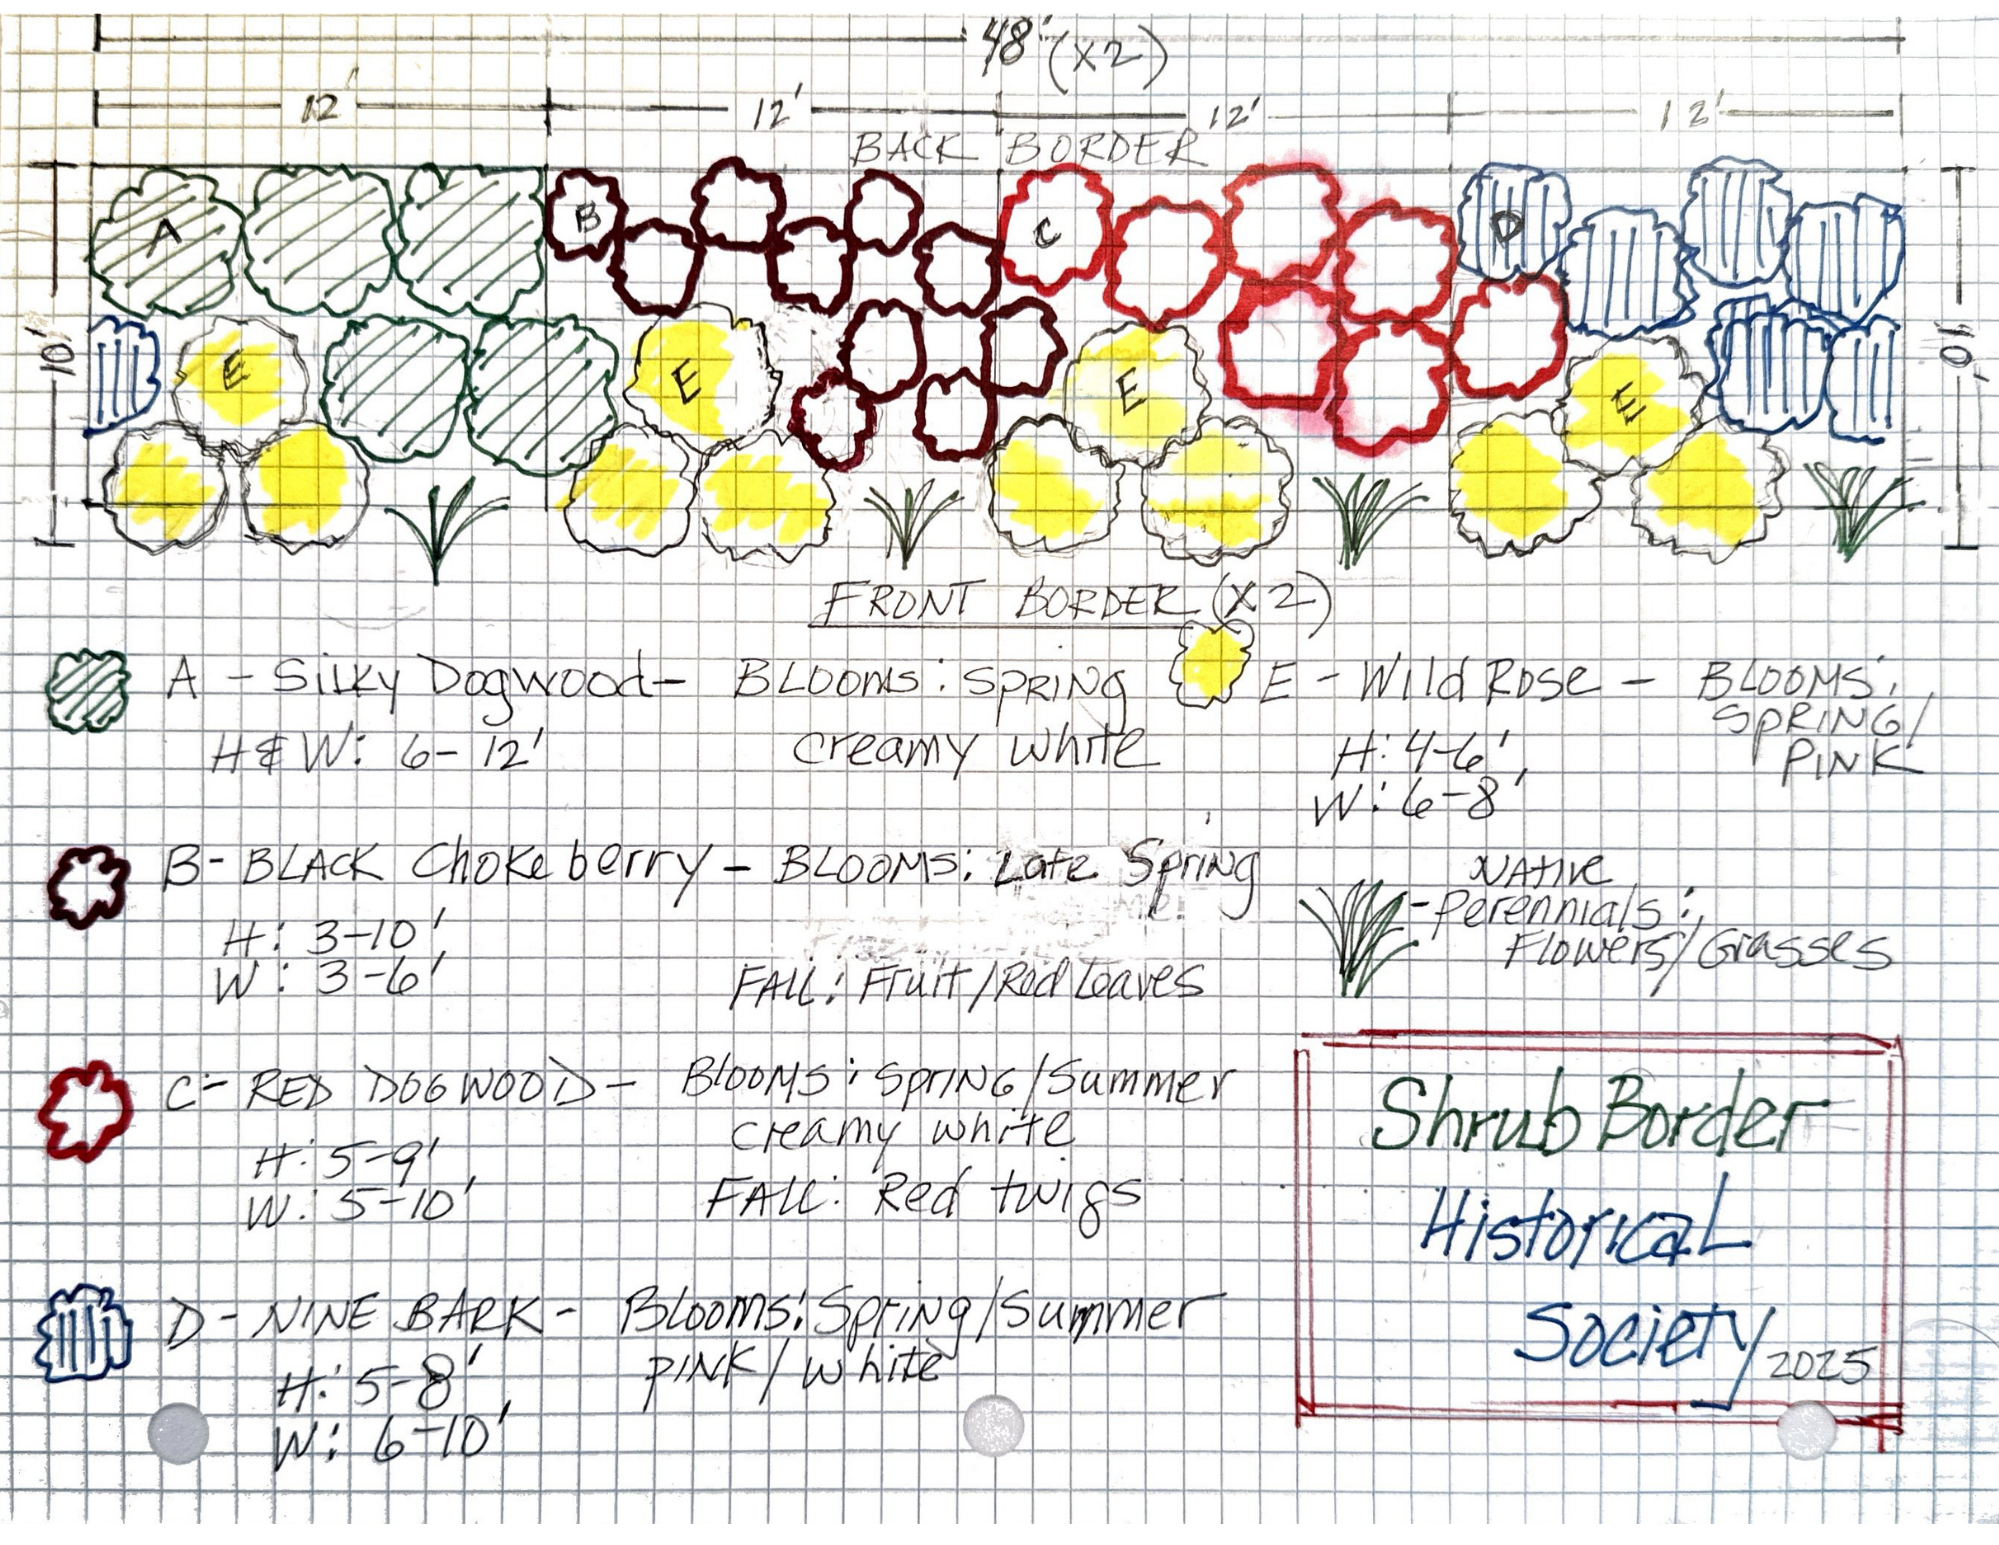 48' (X2)
12' 12' 12' 12'
BACK BORDER
A B C D
10' 10'
E E E E
FRONT BORDER (X2)
A - Silky Dogwood - BLOOMS: SPRING
creamy white
H & W: 6-12'
E - Wild Rose - BLOOMS:
SPRING/
PINK
H: 4-6'
W: 6-8'
B - BLACK Chokeberry - BLOOMS: Late Spring
H: 3-10'
W: 3-6'
FALL: Fruit/Red Leaves
NATive
- Perennials:
Flowers/Grasses
C - RED DOGWOOD - BLOOMS: SPRING/Summer
creamy white
H: 5-9'
W: 5-10'
FALL: Red twigs
D - NINE BARK - Blooms: Spring/Summer
PINK/White
H: 5-8'
W: 6-10'
Shrub Border
Historical
Society
2025